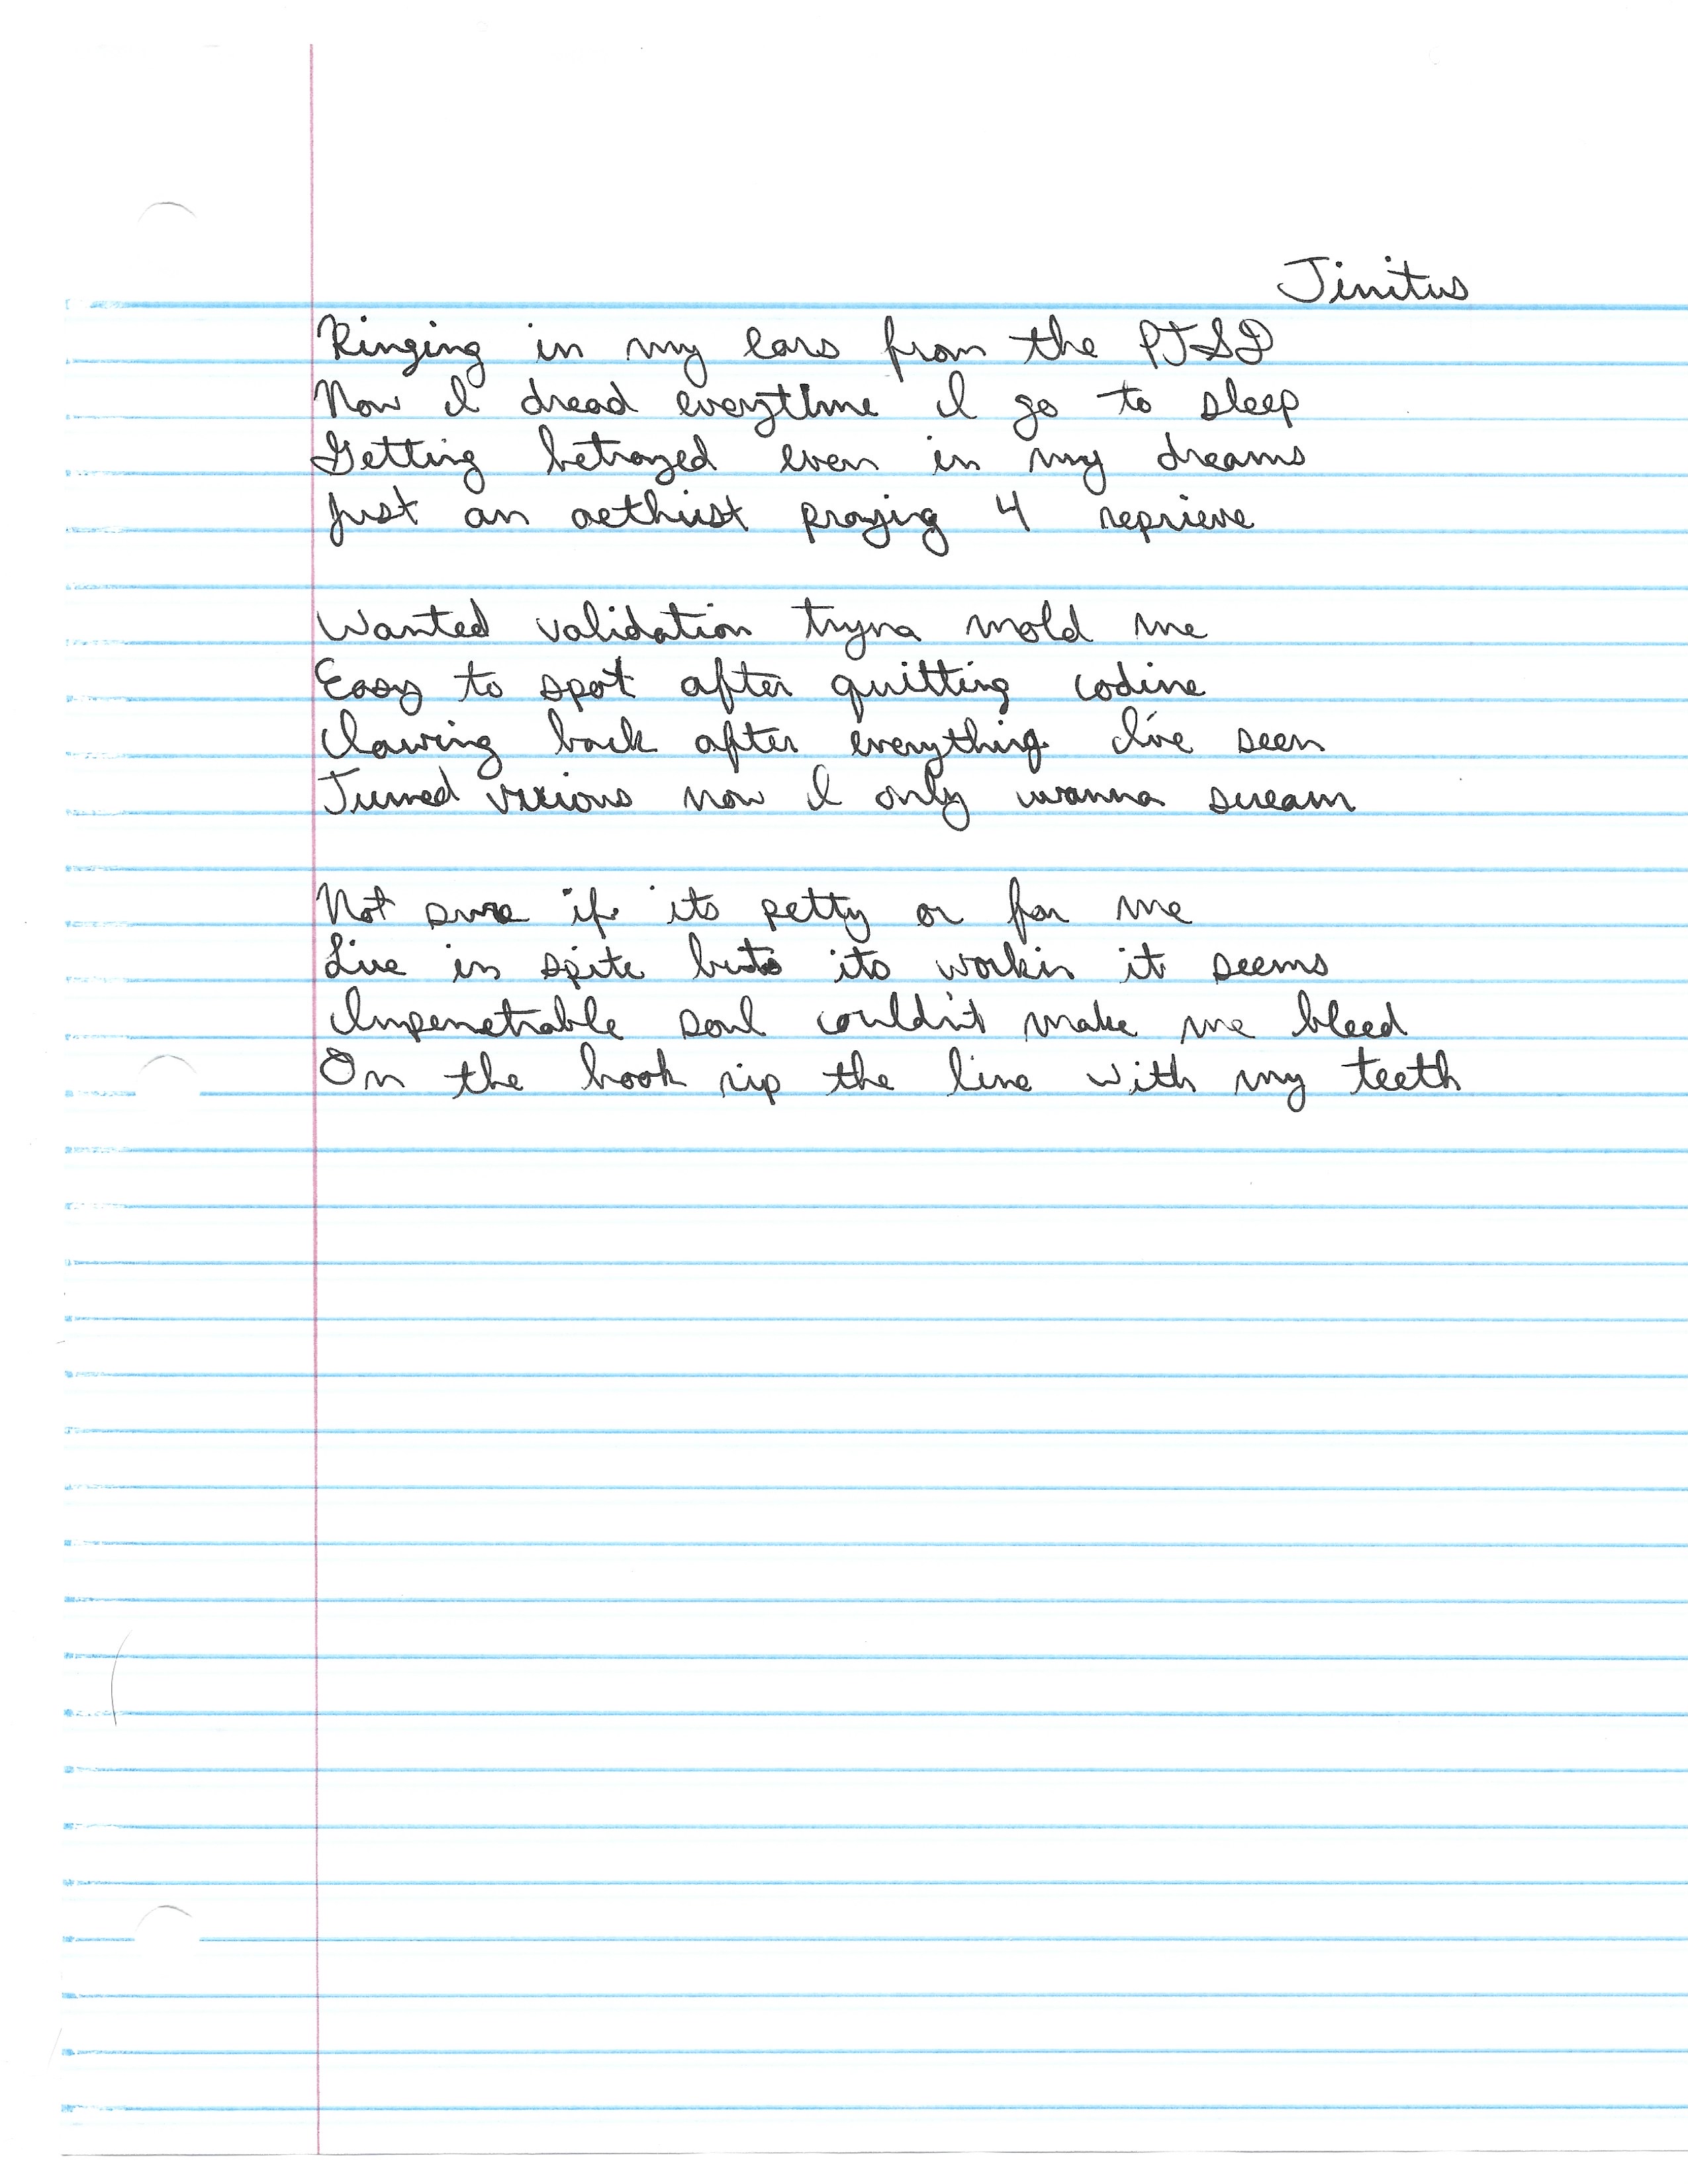 Tinitus
Ringing in my ears from the PTSD
Now I dread everytime I go to sleep
Getting betrayed even in my dreams
Just an aethiest praying 4 reprieve
Wanted validation tryna mold me
Easy to spot after quitting codine
Clawing back after everything I've seen
Turned vicious now I only wanna scream
Not sure if its petty or for me
Live in spite but its workin it seems
Impenetrable soul couldn't make me bleed
On the hook rip the line with my teeth